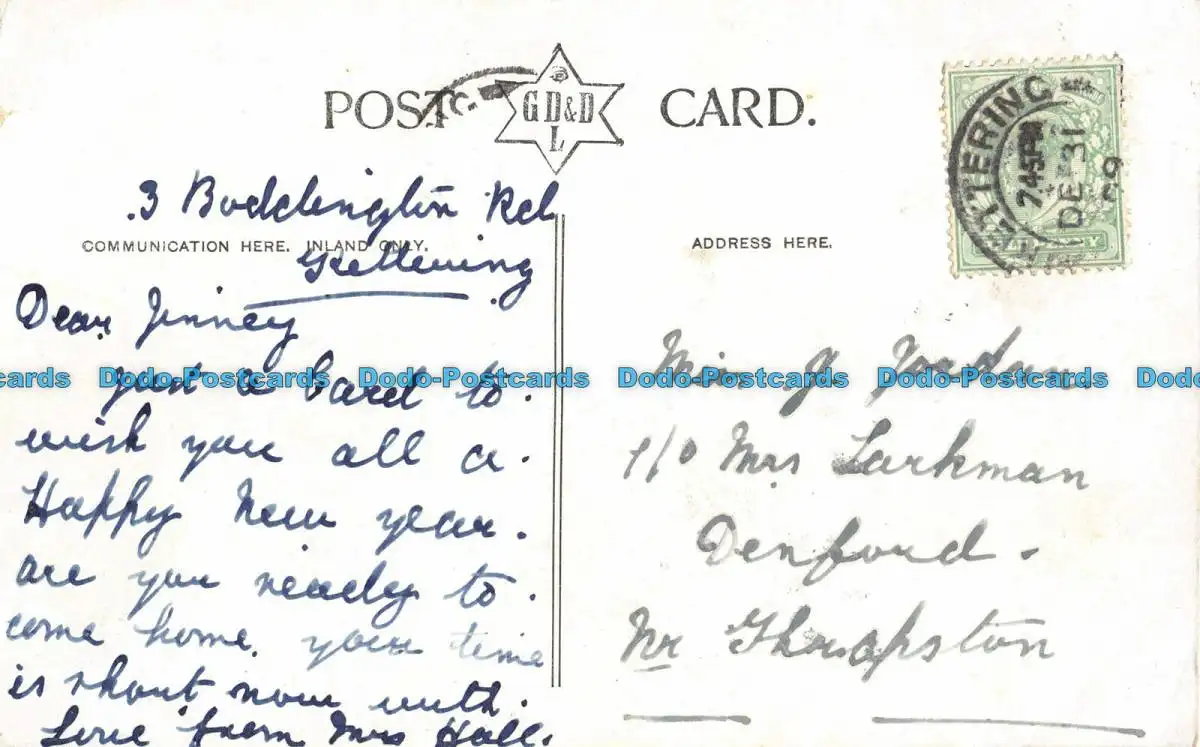 POST CARD.
G D&D L
KETTERING
7.45 PM
DE 31
09
COMMUNICATION HERE. INLAND ONLY.
ADDRESS HERE.
3 Boddington Rd
Kettering
Dear Jinney
just a Card to.
wish you all a.
Happy New year.
are you ready to.
come home. your time
is short now with.
Love from Mrs Hall.
Miss J Jordan
c/o Mrs Larkman
Denford.
Nr Thrapston
Dodo-Postcards Dodo-Postcards Dodo-Postcards Dodo-Postcards